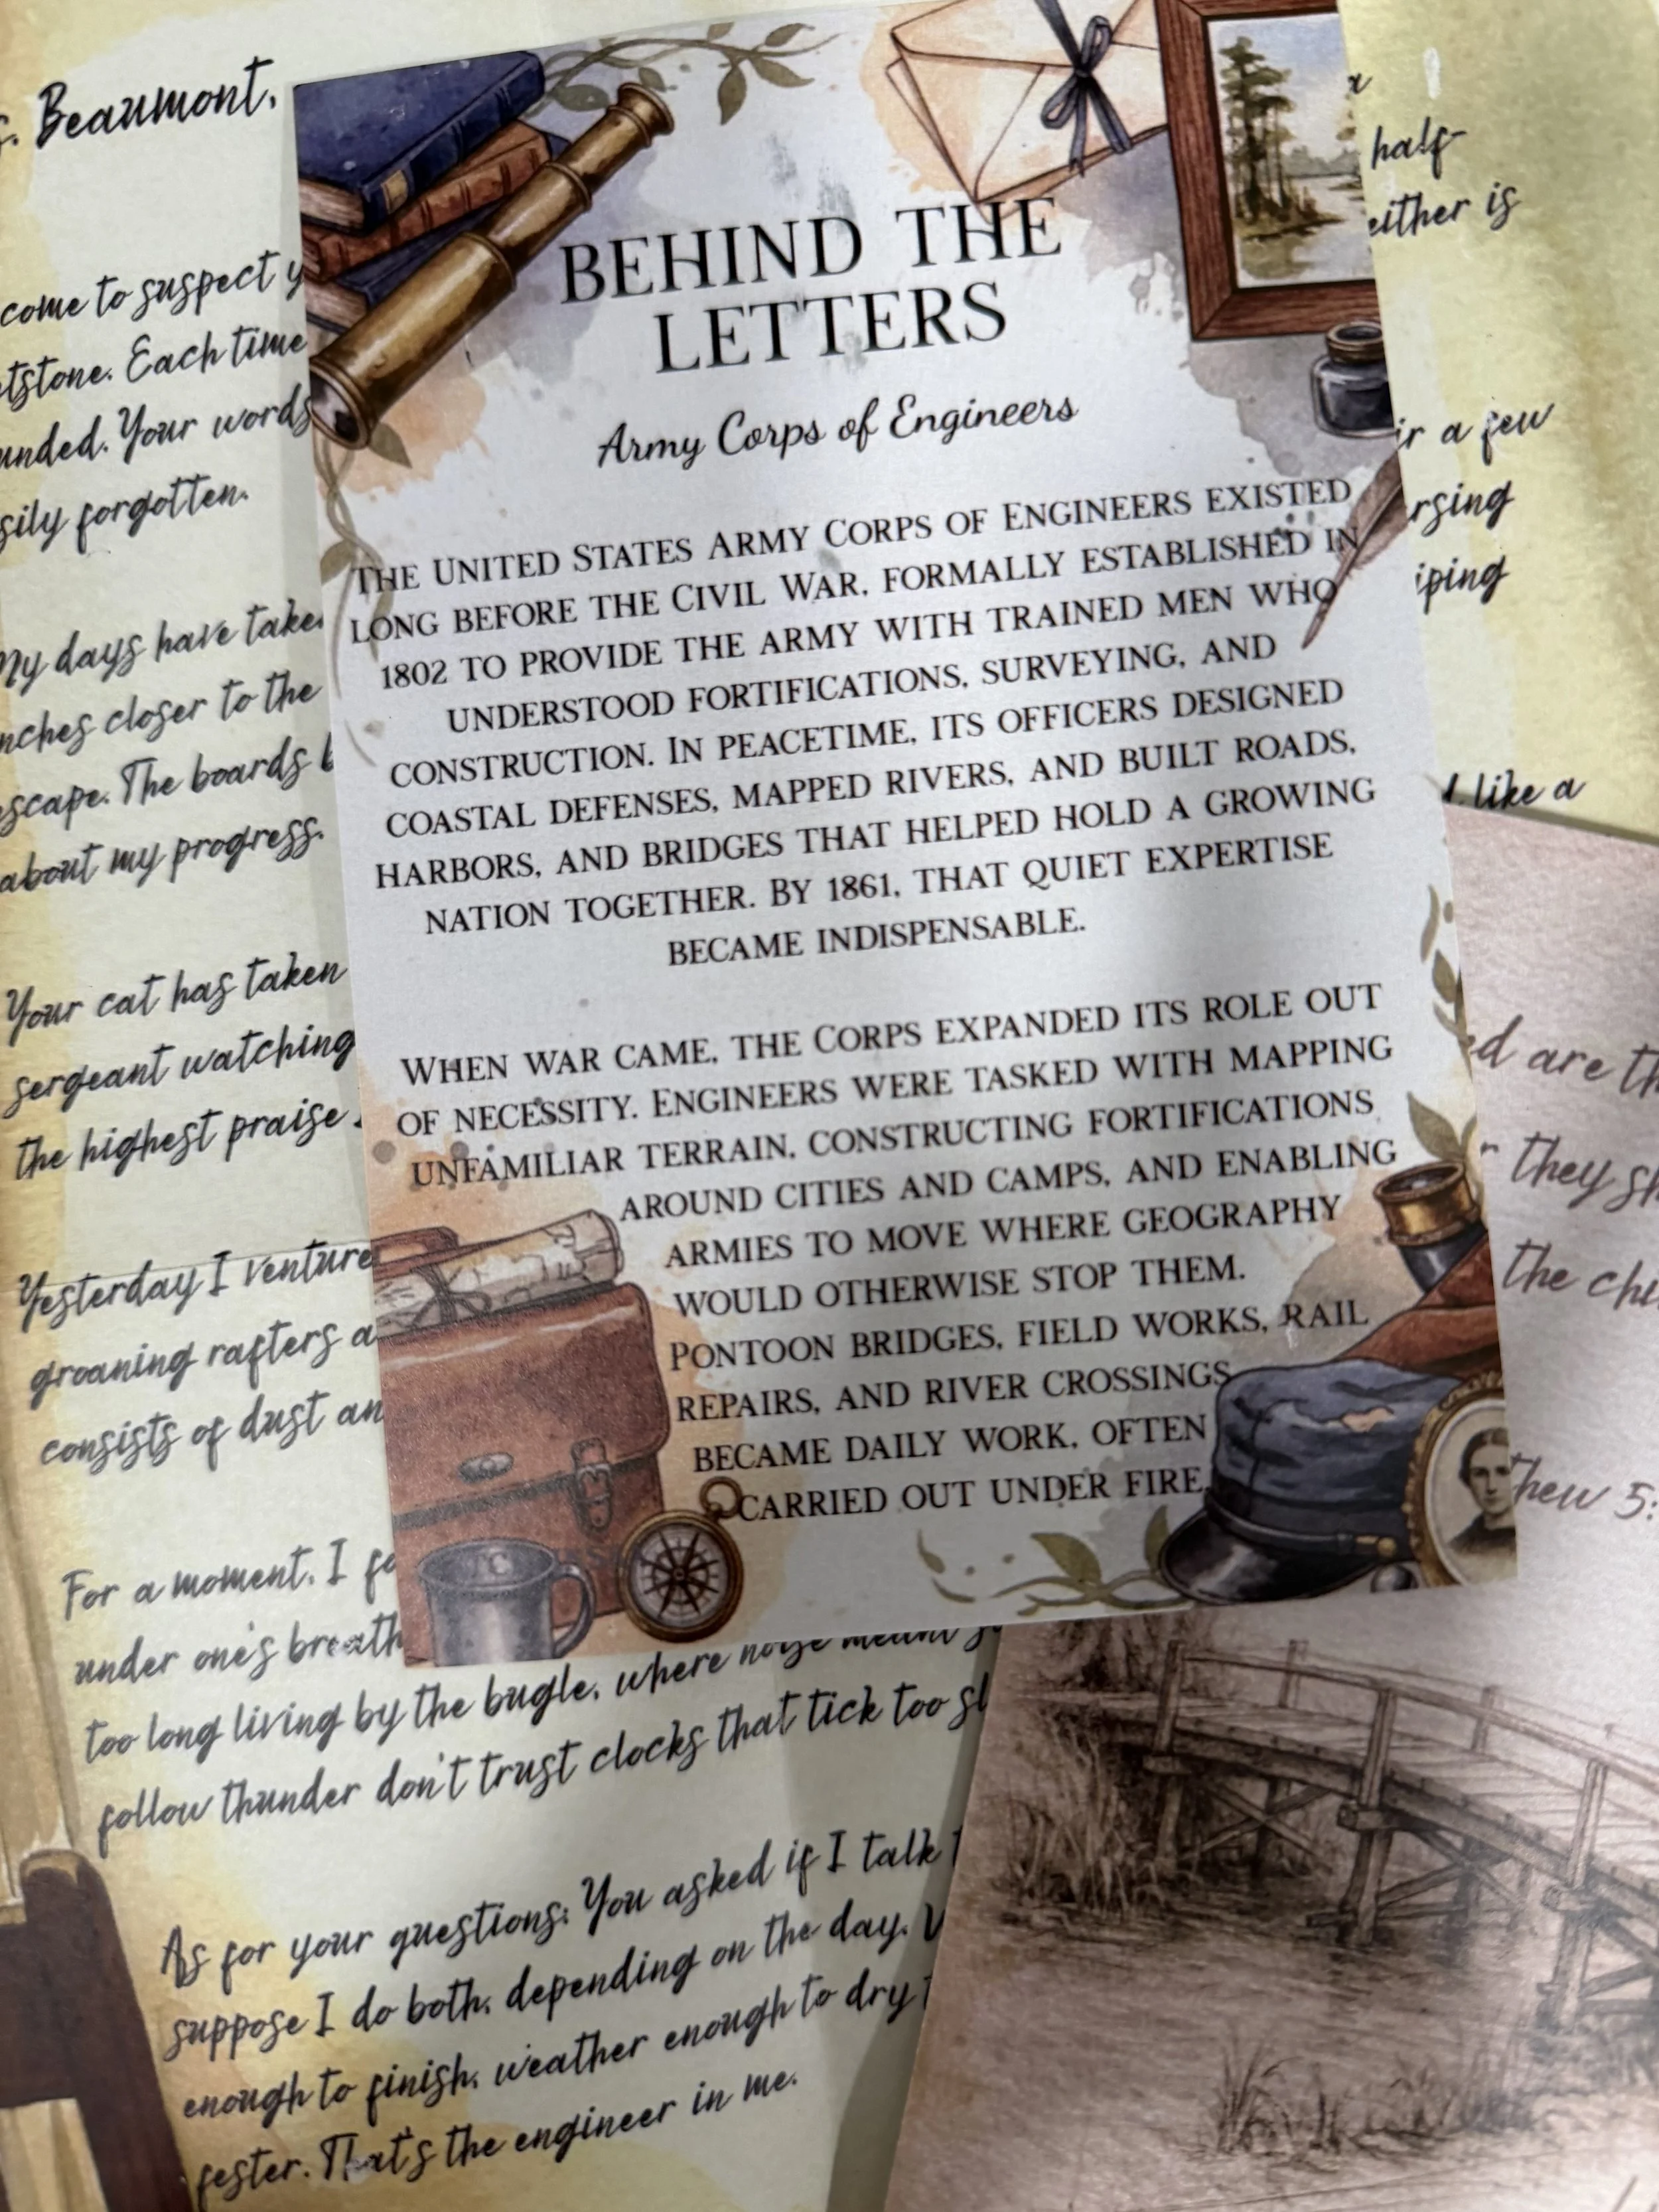 Beaumont,
come to suspect
Each time
Your words
forgotten.
My days have
closer to the
The boards
about my progress.
Your cat has taken
sergeant watching
the highest praise
Yesterday I
groaning rafters
consists of dust
For a moment, I
under one's breath
too long living by the bugle, where noise meant
follow thunder don't trust clocks that tick too
As for your questions: You asked if I talk
suppose I do both, depending on the day.
enough to finish, weather enough to dry
fester. That's the engineer in me.
BEHIND THE
LETTERS
Army Corps of Engineers
THE UNITED STATES ARMY CORPS OF ENGINEERS EXISTED
LONG BEFORE THE CIVIL WAR, FORMALLY ESTABLISHED IN
1802 TO PROVIDE THE ARMY WITH TRAINED MEN WHO
UNDERSTOOD FORTIFICATIONS, SURVEYING, AND
CONSTRUCTION. IN PEACETIME, ITS OFFICERS DESIGNED
COASTAL DEFENSES, MAPPED RIVERS, AND BUILT ROADS,
HARBORS, AND BRIDGES THAT HELPED HOLD A GROWING
NATION TOGETHER. BY 1861, THAT QUIET EXPERTISE
BECAME INDISPENSABLE.
WHEN WAR CAME, THE CORPS EXPANDED ITS ROLE OUT
OF NECESSITY. ENGINEERS WERE TASKED WITH MAPPING
UNFAMILIAR TERRAIN, CONSTRUCTING FORTIFICATIONS
AROUND CITIES AND CAMPS, AND ENABLING
ARMIES TO MOVE WHERE GEOGRAPHY
WOULD OTHERWISE STOP THEM.
PONTOON BRIDGES, FIELD WORKS, RAIL
REPAIRS, AND RIVER CROSSINGS
BECAME DAILY WORK, OFTEN
CARRIED OUT UNDER FIRE.
half-
either is
a few
like a
are
they
the
5: